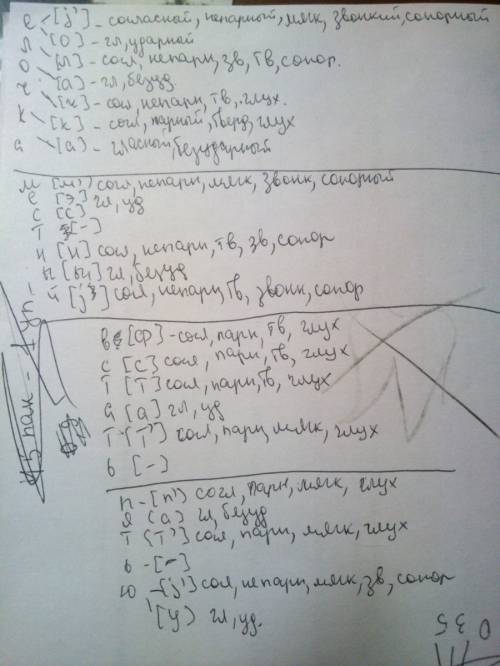 е [j'] - согласной, непарный, мягк, звонкий, сонорный
л [о] - гл, ударной
о [ы] - согл, непарн, зв, тв, сонор.
ч [а] - гл, безуд.
[ч] - согл, непарн, тв, глух.
к [к] - согл, парный, тверд, глух
а [а] - гласный, безударный
м [м'] согл, непарн, мягк, звонк, сонорный
е [э] гл, уд
с [с]
т [-]
н [н] согл, непарн, тв, зв, сонор
ы [ы] гл, безуд
й [j'] согл, непарн, тв, звонк, сонор
в [ф] - согл, парн, тв, глух
с [с] согл, парн, тв, глух
т [т] согл, парн, тв, глух
а [а] гл, уд
т [т'] согл, парн, мягк, глух
ь [-]
п - [п'] согл, парн, мягк, глух
я [а] гл, безуд
т [т'] согл, парн, мягк, глух
ь - [-]
ю - [j'] согл, непарн, мягк, зв, сонор
[у] гл, уд.